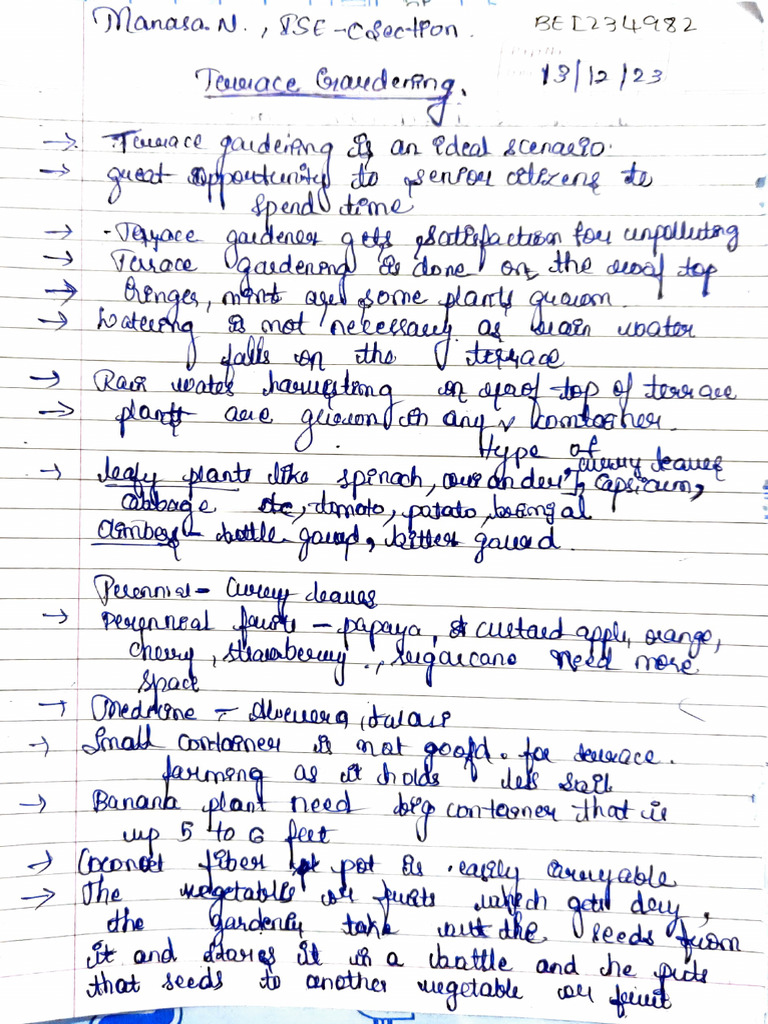 Manasa.N., ISE-C Section.
BEI234982
13/12/23
Terrace Gardering.
→ Terrace gardering is an ideal scenario.
→ great opportunity to senior citizens to
spend time
→ Terrace gardener gets satisfaction for unpolluting
→ Terrace gardening is done on the roof top
→ Ginger, mint are some plants grown.
→ Watering is not necessary as rain water
falls on the terrace
→ Rain water harvesting on roof top of terrace
→ plants are grown in any container.
type of
→ leafy plants like spinach, coriander, curry leaves
capsicum,
cabbage etc, tomato, potato, bringal
Climbers - bottle gourd, bitter gourd.
Perennial - Curey leaves
→ perenneal fruits - papaya, custard apple, orange,
cherry, strawberry., sugarcane need more
space
→ Medicine - aloevera,
→ Small container is not good. for terrace.
farming as it holds less soil
→ Banana plant need big container that is
up 5 to 6 feet
→ Coconut fiber pot is easily carryable
→ The vegetable or fruits which gets dry,
the gardener take out the seeds from
it and stores it in a bottle and he puts
that seeds to another vegetable or fruit